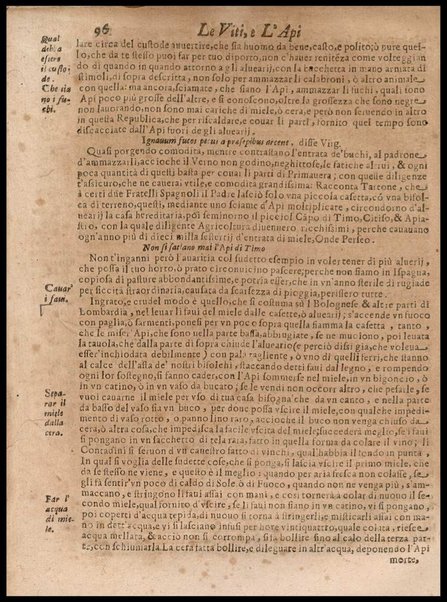 96 Le Viti, e L'Api
Qual
debba
essere
il custo-
de.
Che sia
no i fu-
chi.
lare circa del custode auuertire, che sia huomo da bene, casto, e polito; ò pure quel-
lo, che da te stesso puoi far per tuo diporto, non c'hauer renitẽza come volteggian
do di quando in quando attorno a gli aluearij, con la bacchetta in mano armata di
stimoli, di sopra descritta, non solo per ammazzarli i calabroni, ò altro animale
con quella: ma ancora, sciamate, che siano l'Api, ammazzar li fuchi, quali sono
Api poco più grosse dell'altre, e si conoscono, oltre la grossezza che sono negre
non lauorano, non mai cariche di miele, ò cera, e però non seruendo ad altro
in questa Republica, che per riscaldare, e couar li parti, fornito quel tempo sono
discacciate dall'Api fuori de gli aluearij.
Ignauum fucos pecus a præsepibus arcent, disse Virg.
Quasi porgendo comodità, mentre contrastano l'entrata de' buchi, al padrone
d'ammazzarli, acciò che il Verno non godino, neghittose, le fatiche altrui, & ogni
poca quantità di questi basta per couar li parti di Primauera; con quelle diligenze
t'assicuro, che ne cauerai vtile, e commodità grandissima: Racconta Varrone, che
a certi due Fratelli Spagnoli il Padre lasciò solo vna piccola casetta, cõ vna bifol-
ca di terreno, questi, mediante vno sciamo d'Api moltiplicate, circondorno d'al-
uearij la casa hereditaria, poi seminorno il picciol Cãpo di Timo, Citiso, & Apia-
stro, con la quale diligente Agricoltura diuennero ricchissimi, perche cauauano
ogn'anno più di dieci milla sestertij d'entrata di miele, Onde Perseo.
Non si satiano mai l'Api di Timo
Cauar'
i faui.
Non t'inganni però l'auaritia col sudetto esempio in voler tener di più aluearij,
che possa il tuo horto, ò prato circonuicino pascere; perche non siamo in Ispagna,
copiosa di pasture abbondantissime, e potria esser, che in vn'anno sterile di rugiade
per siccità straordinaria, causata da scarsezza di pioggia, perissero tutte.
Ingrato, e crudel modo è quello, che si costuma sù l Bolognese & altre parti di
Lombardia, nel leuar li faui del miele dalle casette, ò aluearij; s'accende vn fuoco
con paglia, ò sarmenti, ponesi per vn poco sopra quella fiamma la casetta, tanto,
che le miser'Api, che sono nella parte bassa, abbrugiate, se ne muoiono, poi leuata
la tauola, che dalla parte di sopra chiude l'aluearìo (se perciò disi già, che voleua
esser'inchiodata debilmente) con pala tagliente, ò vno di quelli ferri, che stanno
al calce dell'asta de' nostri bisolchi, staccando detti faui dal legno, e rompendo
ogni lor sostegno, li fanno cadere, con l'Api sommerse nel miele, in vn bigoncio, ò
Sepa-
rar il
miele
dalla
cera.
in vn catino, ò in vn vaso da bucato, se le vendi non occorr altro, che pesale, se
vuoi cauarne il miele per vso di tua casa bisogna c'habbi da vn canto, e nella parte
da basso del vaso sia vn buco, per doue possa vscire il miele, con qualche impedi-
mento di vaso rotto, ò panno lino raro, acciò che il buco non venga chiuso da
cera, ò altra cosa, che impedisca la facile vscita del miele; succederà meglio, se i faui
si pongano in vn sacchetto di tela rara, fatto in quella forma da colare il vino; li
Contadini si seruon d'vn canestro fatto di vinchi, qual'habbia il fondo in punta.
In qual si voglia delle sudette cose, che si ponga, si lascia vscire il primo miele, che
da se stesso ne viene, e questo è il meglio: quando per aria fresca non colasse, se
gli fà sentir'vn poco di caldo di Sole, ò di Fuoco, quando non ne venga più, s'am-
Far l'
acqua
di mie-
le.
maccano, e stringono li faui assai con mani, e così tornerà colar di nuouo il se-
condo miele, qual fornito d'vscire, se li faui non siano in vn catino, vi si pongano,
poi coperti d'acqua tepida, di nuouo si torna à stringerli, e misticarli assai con ma-
no in dett'acqua, e vi si lasciano infusi per hore vintiquattro, quale colata, riesce
acqua mellata, & acciò non si corrompa, si fà bollire sino al calo della terza par-
te, con schiumarla. La cera fatta bollire, e dileguare in altr'acqua, deponendo l'Api
morte,